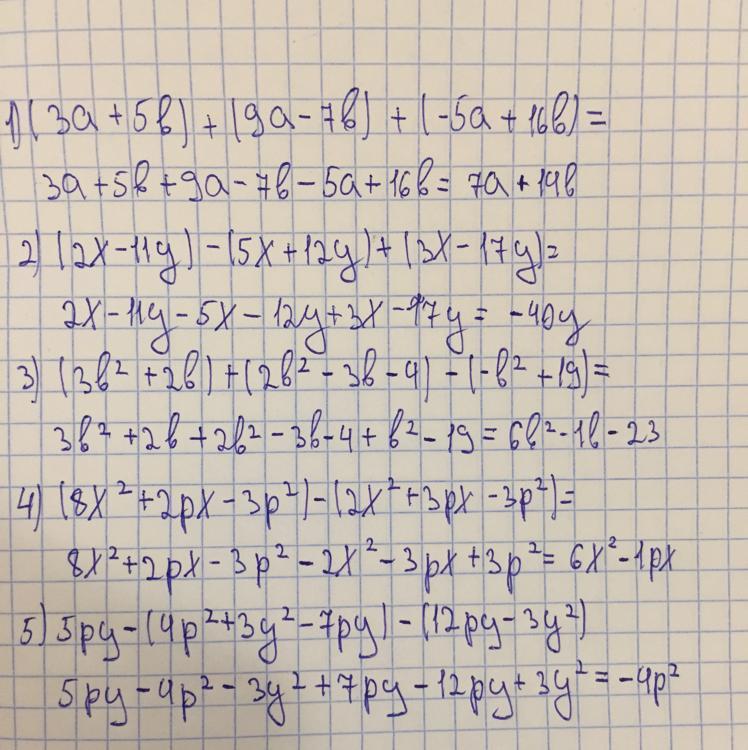 1) (3a + 5b) + (9a - 7b) + (-5a + 16b) =
3a + 5b + 9a - 7b - 5a + 16b = 7a + 14b
2) (2x - 11y) - (5x + 12y) + (3x - 17y) =
2x - 11y - 5x - 12y + 3x - 17y = -40y
3) (3b² + 2b) + (2b² - 3b - 4) - (-b² + 19) =
3b² + 2b + 2b² - 3b - 4 + b² - 19 = 6b² - 1b - 23
4) (8x² + 2px - 3p²) - (2x² + 3px - 3p²) =
8x² + 2px - 3p² - 2x² - 3px + 3p² = 6x² - 1px
5) 5py - (4p² + 3y² - 7py) - (12py - 3y²)
5py - 4p² - 3y² + 7py - 12py + 3y² = -4p²